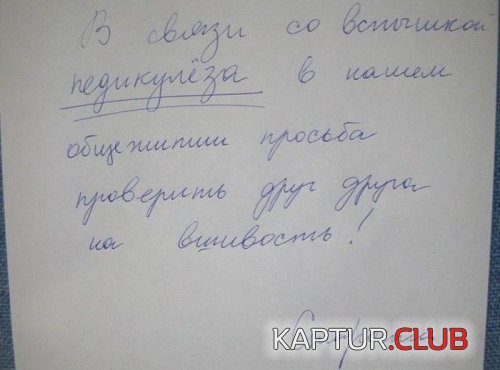 В связи со вспышкой
педикулёза в нашем
общежитии просьба
проверить друг друга
на вшивость!
KAPTUR.CLUB